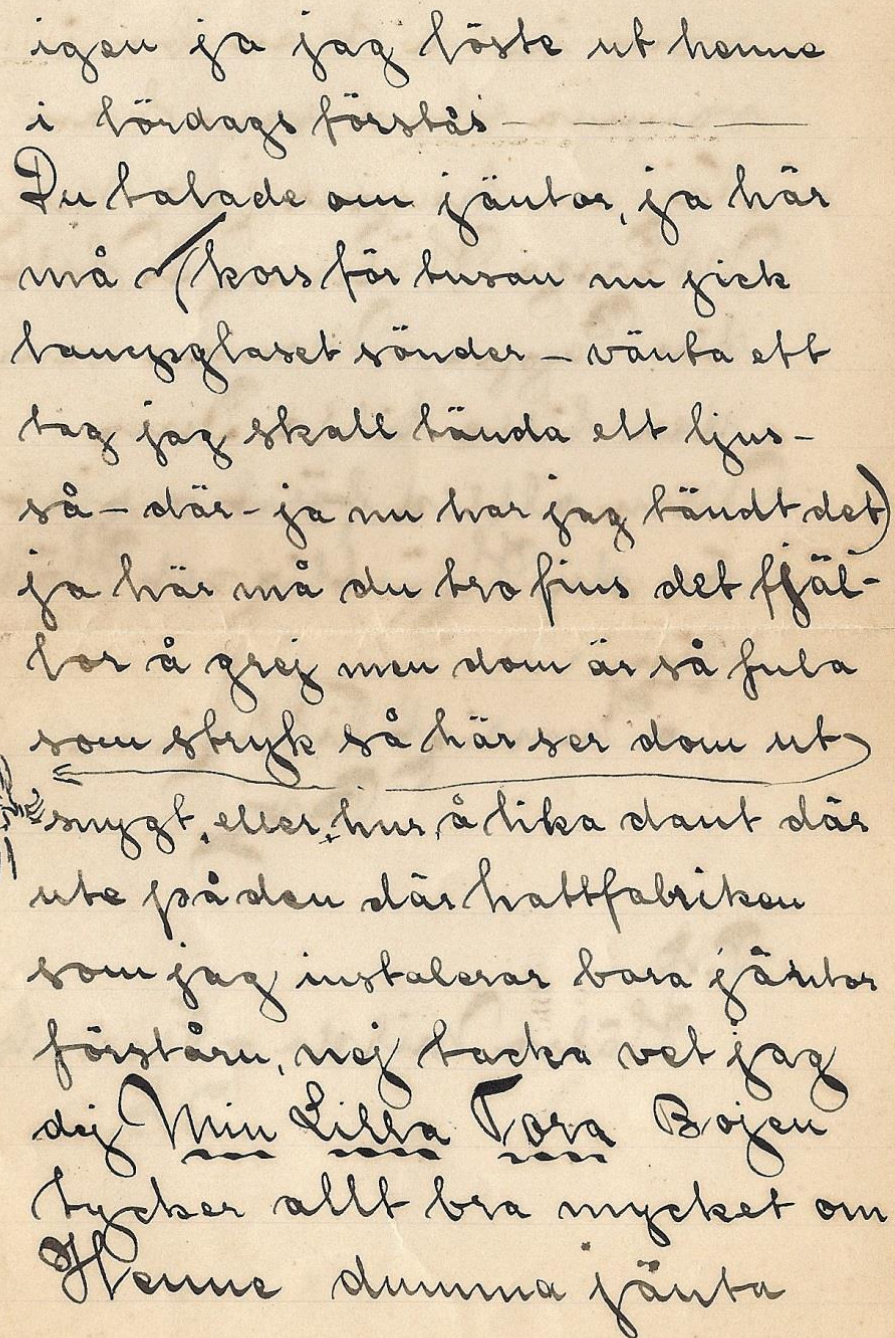 igen ja jag löste ut henne
i lördags förstås - - - -
Du talade om jäntor, ja här
må (kors för tusan nu gick
lampglaset sönder – vänta ett
tag jag skall tända ett ljus –
så – där – ja nu har jag tändt det)
ja här må du tro fins det fjäl-
lor å grej men dom är så fula
som stryk så här ser dom ut
snygt, eller hur, å lika dant där
ute på den där hattfabriken
som jag instalerar bara jäntor
förstårn, nej tacka vet jag
dej Min Lilla Tora Bojen
tycker allt bra mycket om
Henne dumma jänta